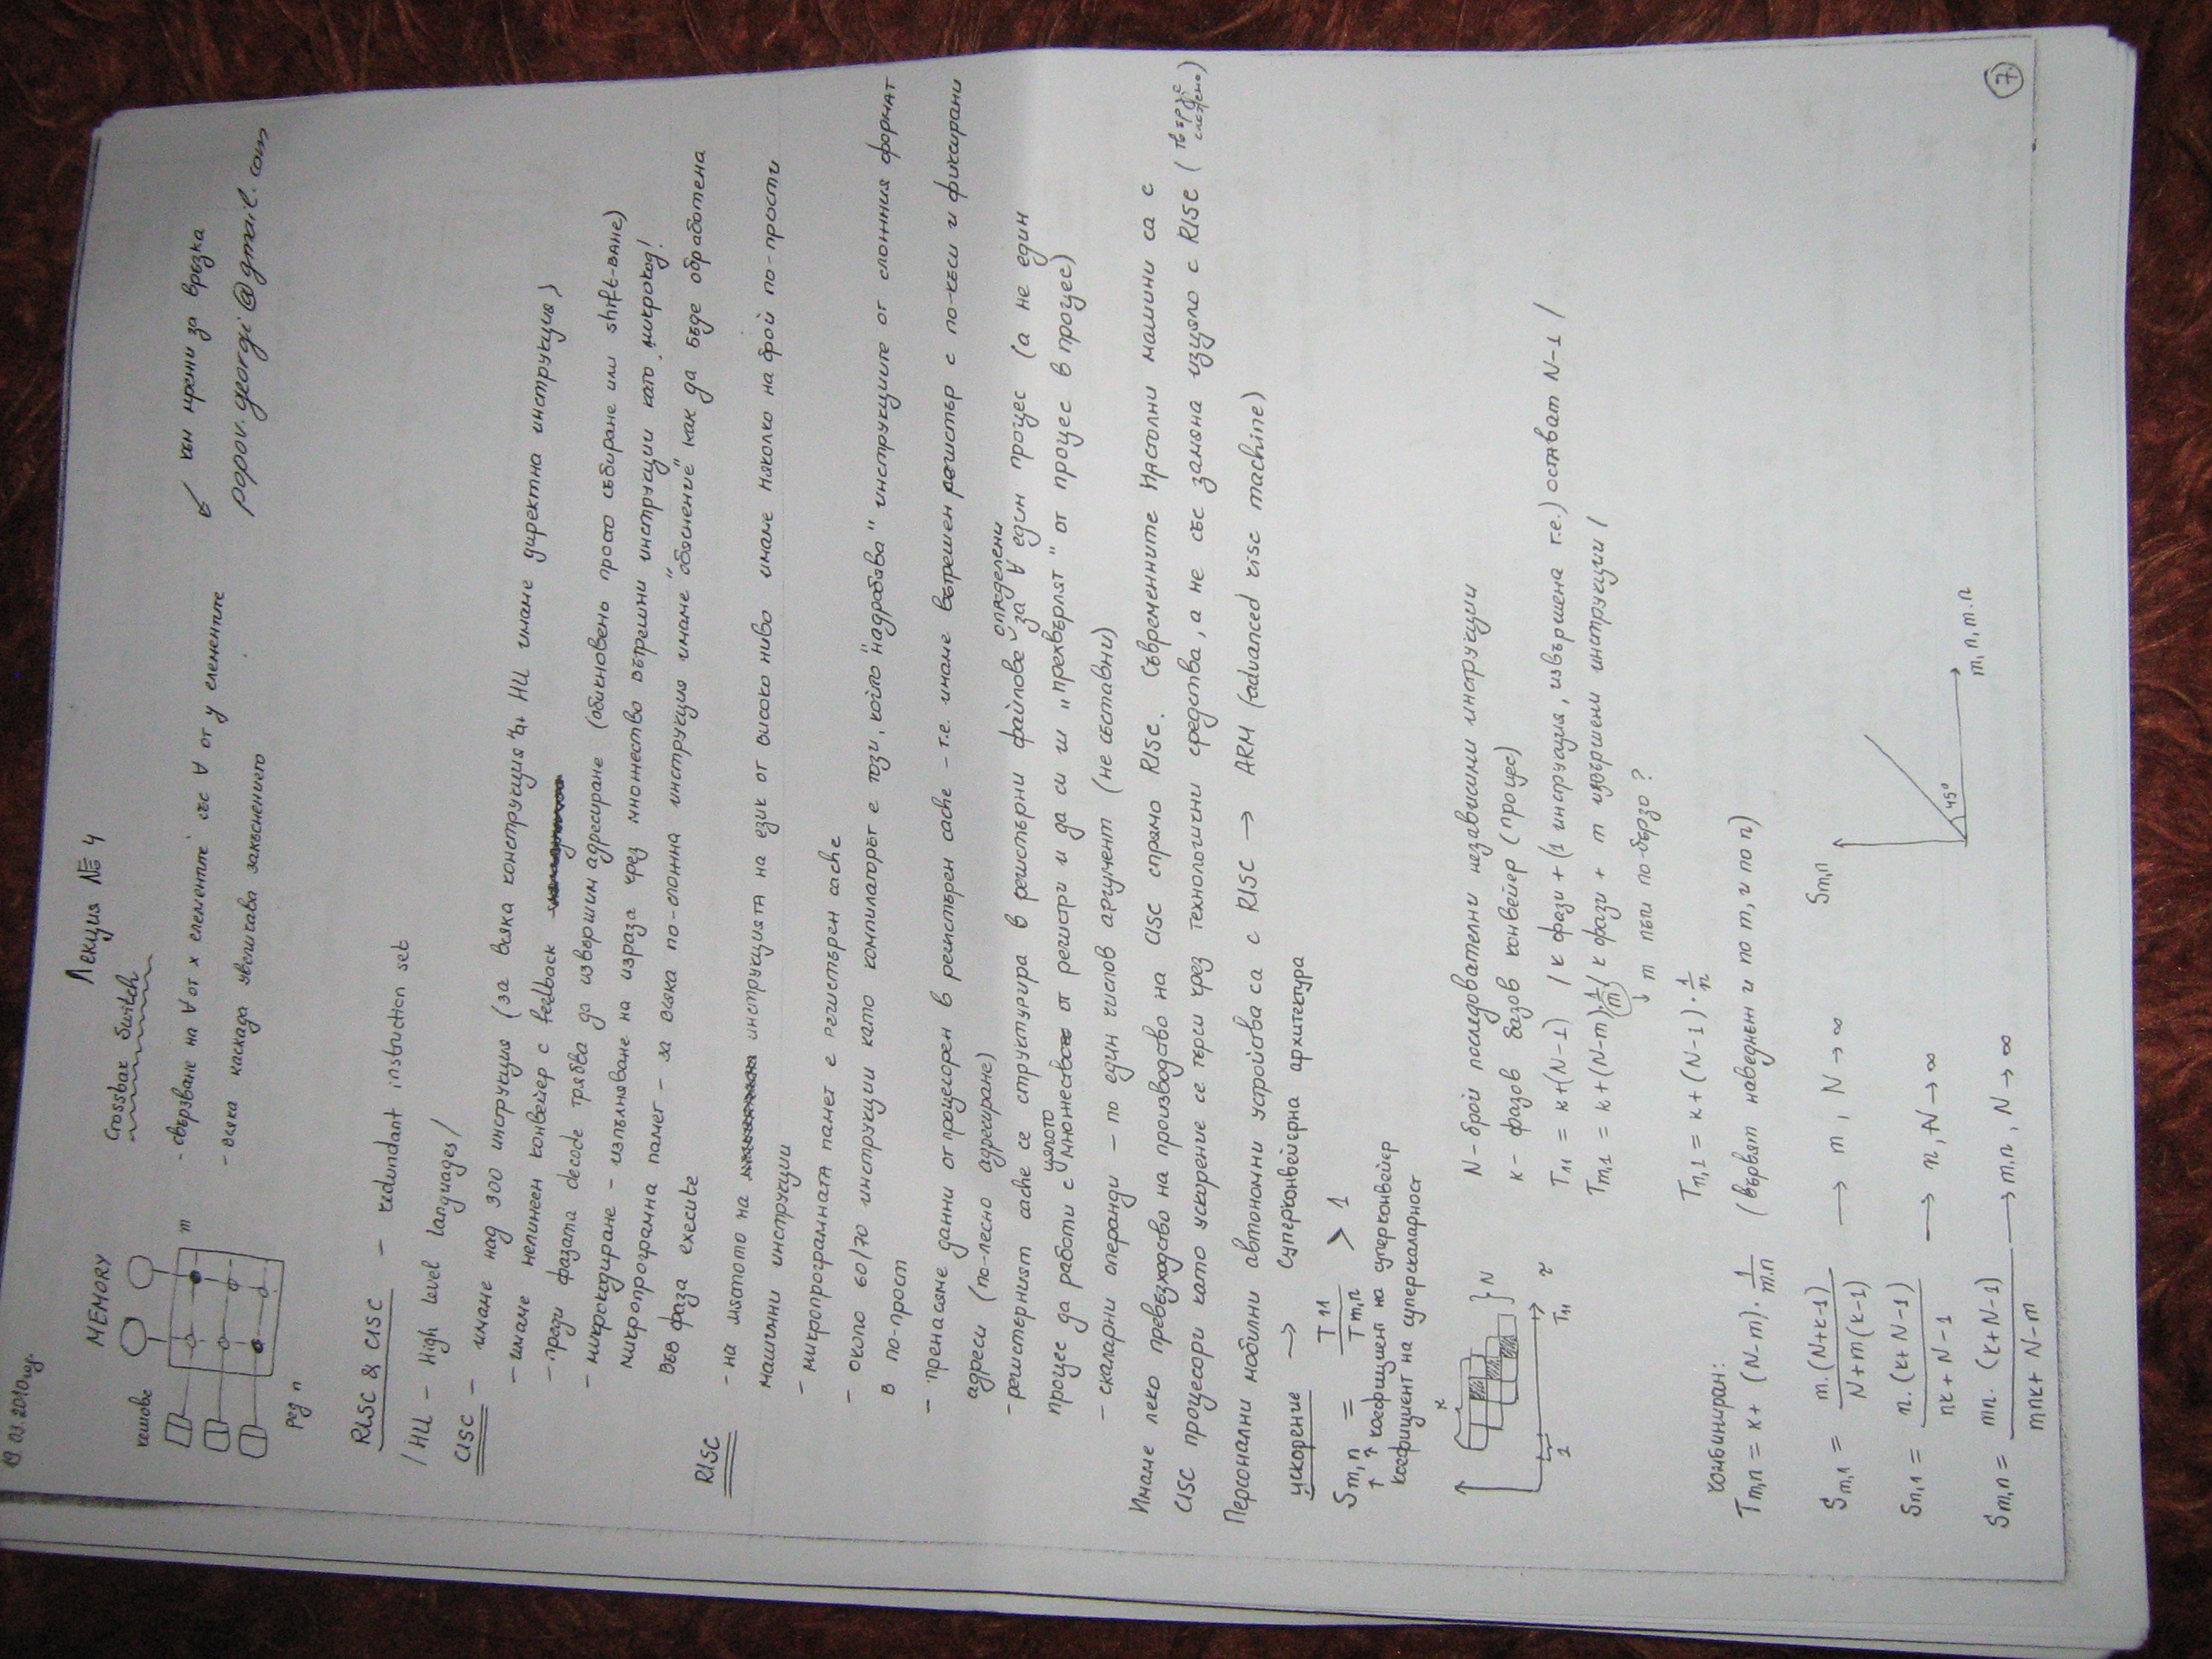 19.03.2010год.
Лекция № 4
Crossbar Switch
MEMORY
кешове
m
ред n
- свързване на ∀ от x елементите със ∀ от y елементите
- всяка каскада увеличава закъснението
↙ към мрежи за връзка
popov.georgi@gmail.com
RISC & CISC - redundant instruction set
/HLL - High level languages/
CISC - имаме над 300 инструкция (за всяка конструкция в HLL имаме директна инструкция)
- имаме нелинеен конвейер с feedback
- преди фазата decode трябва да извършим адресиране (обикновено просто събиране или shift-ване)
- микрокодиране - изпълняване на израза чрез множество вътрешни инструкции като микрокод!
микропрограмна памет - за всяка по-сложна инструкция имаме "обяснение" как да бъде обработена
във фаза execute
RISC - на мястото на инструкцията на език от високо ниво имаме няколко на брой по-прости
машинни инструкции
- микропрограмната памет е регистърен cache
- около 60/70 инструкции като компилаторът е този, който "надробява" инструкциите от сложния формат
в по-прост
- пренасяме данни от процесорен в регистърен cache - т.е. имаме вътрешен регистър с по-къси и фиксирани
адреси (по-лесно адресиране)
- регистърният cache се структурира в регистърни файлове определени за ∀ един процес (а не един
процес да работи с цялото множество от регистри и да си ги "прехвърлят" от процес в процес)
- скаларни операнди - по един числов аргумент (не съставни)
Имаме леко превъзходство на производство на CISC спрямо RISC. Съвременните настолни машини са с
CISC процесори като ускорение се търси чрез технологични средства, а не със замяна изцяло с RISC (твърде сложно)
Персонални мобилни автономни устройства са с RISC → ARM (advanced risc machine)
ускорение → суперконвейерна архитектура
Sm,n = T11 / Tm,n > 1
↑ ↑ коефициент на суперконвейер
коефициент на суперскаларност
k
} N
1
T11
τ
N - брой последователни независими инструкции
k - фазов базов конвейер (процес)
T11 = k+(N-1) / k фази + (1 инструкция, извършена т.е.) остават N-1 /
Tm,1 = k+(N-m).1/m / k фази + m извършени инструкции /
↓ m пъти по-бързо?
Tn,1 = k+(N-1).1/n
комбиниран:
Tm,n = k+ (N-m).1/m.n (вървят наведнъж и по m, и по n)
Sm,1 = m.(N+k-1) / N+m(k-1) → m, N→∞
Sn,1 = n.(k+N-1) / nk+N-1 → n, N→∞
Sm,n = mn.(k+N-1) / mnk+N-m → m.n, N→∞
Sm,n
45°
m, n, m.n
7.